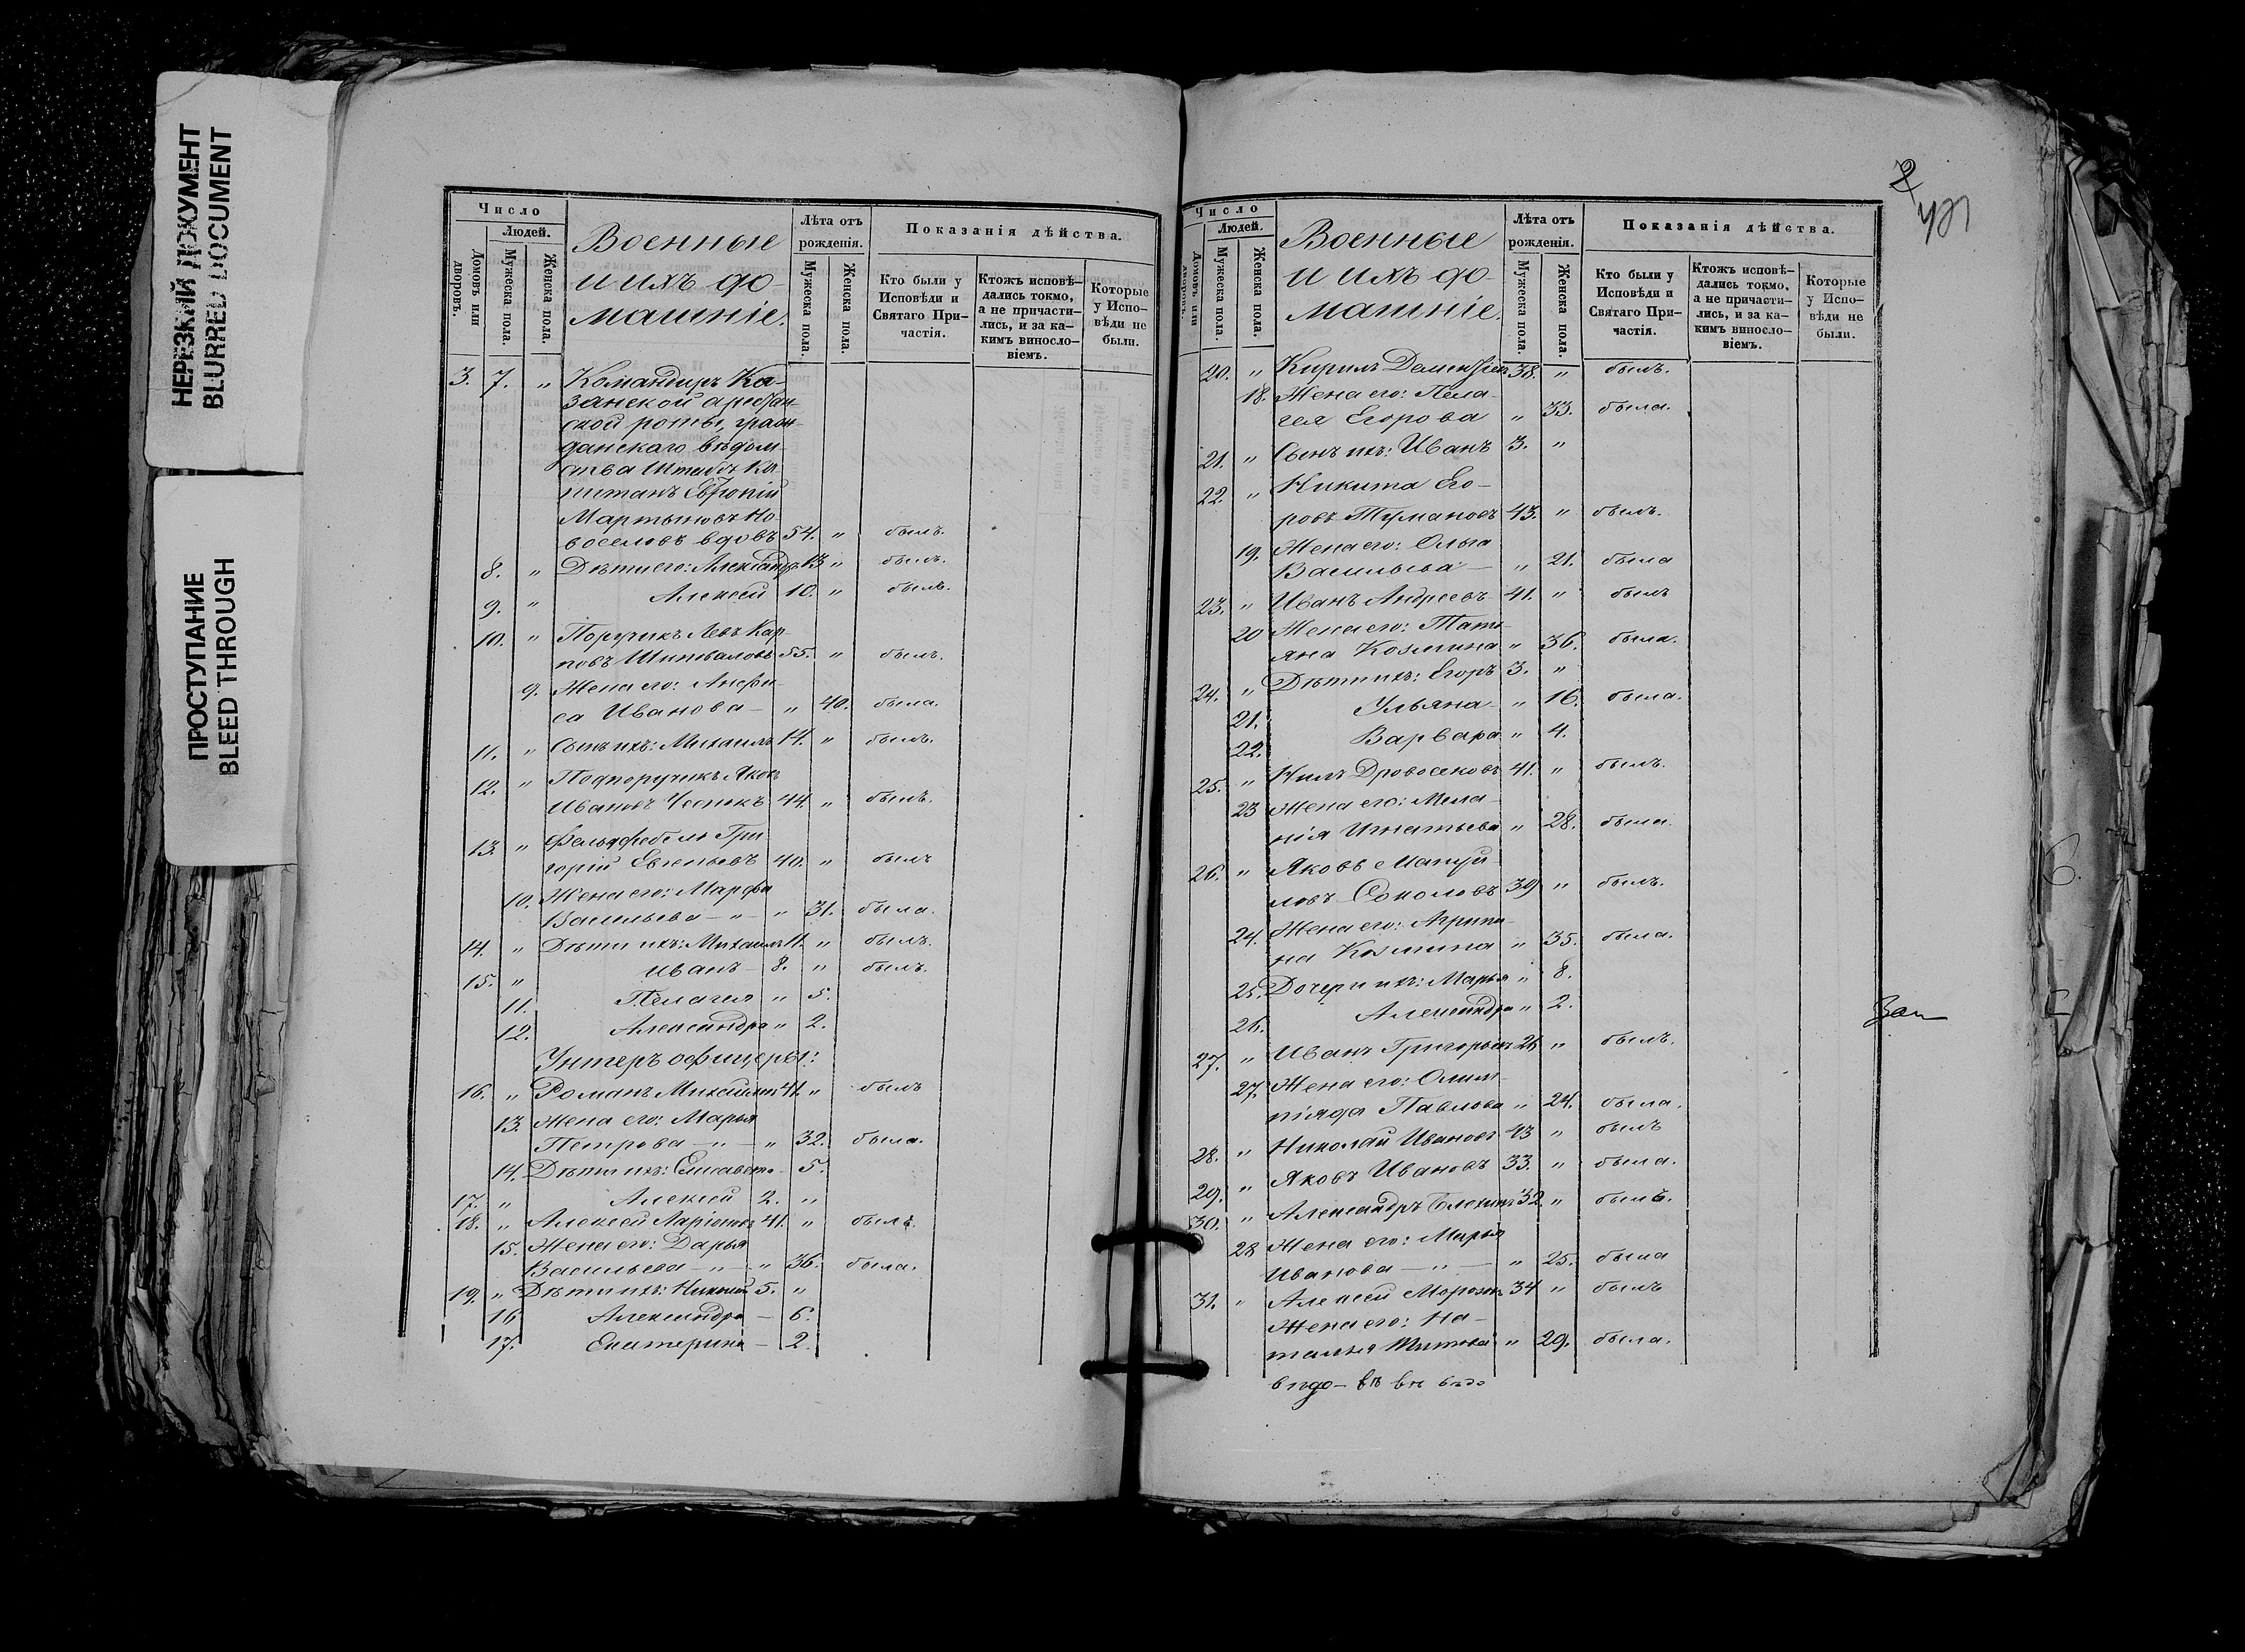 НЕРЕЗКИЙ ДОКУМЕНТ
BLURRED DOCUMENT
ПРОСТУПАНИЕ
BLEED THROUGH
Число
Людей.
Домовъ или дворовъ.
Мужеска пола.
Женска пола.
Военные
и ихъ до-
машніе.
Лѣта отъ
рожденія.
Мужеска пола.
Женска пола.
Показанія дѣйства.
Кто были у
Исповѣди и
Святаго При-
частія.
Ктожъ исповѣ-
дались токмо,
а не причасти-
лись, и за ка-
кимъ винosло-
віемъ.
Которые
у Испо-
вѣди не
были.
3. 7. " Командиръ Ка-
занской арестан-
ской роты, граж-
данскаго вѣдом-
ства Штабсъ Ка-
питанъ
Мартыновъ Но-
воселовъ вдовъ 54. " былъ.
8. " Дѣти его: Александръ 13 " былъ.
9. " Алексей 10. " былъ.
10. " Поручикъ Левъ Кар-
повъ 55. " былъ.
9. Жена его: Анфи-
са Иванова — " 40. была.
11. " Сынъ ихъ: Михаилъ 14. " былъ.
12. " Подпоручикъ Яковъ
Ивановъ 44. " былъ.
13. " Фельдфебель Гри-
горій Евгеньевъ 40. " былъ
10. Жена его: Марфа
Васильева — " — " 31. была.
14. " Дѣти ихъ: Михаилъ 11. " былъ.
15. " Иванъ — 8. " былъ.
11. Пелагея " 5.
12. Александра " 2.
Унтеръ офицеры:
16. " Романъ Михайловъ 41. " былъ
13. Жена его: Марья
Петрова — " — " 32. была.
14. Дѣти ихъ: Елисавета - 5.
17. " Алексей 2. "
18. " Алексей Ларіоновъ 41. " былъ.
15. Жена его: Дарья
Васильева — " — " 36. была.
19. " Дѣти ихъ: 5. "
16 Александра — 6.
17. Екатерина — 2.
2
Число
Людей.
Домовъ или дворовъ.
Мужеска пола.
Женска пола.
Военные
и ихъ до-
машніе.
Лѣта отъ
рожденія.
Мужеска пола.
Женска пола.
Показанія дѣйства.
Кто были у
Исповѣди и
Святаго При-
частія.
Ктожъ исповѣ-
дались токмо,
а не причасти-
лись, и за ка-
кимъ винosло-
віемъ.
Которые
у Испо-
вѣди не
были.
20. " Кирилъ 38. " былъ.
18. Жена его: Пела-
гея Егорова " 33. была.
21. " Сынъ ихъ: Иванъ 3. "
22. " Никита Его-
ровъ Тумановъ 43. " былъ.
19. Жена его: Ольга
Васильева — " 21. была
23. " Иванъ Андреевъ 41. " былъ
20 Жена его: Тать-
яна Козмина " 36. была.
24. " Дѣти ихъ: Егоръ 3. "
21. Ульяна — " 16. была.
22. Варвара " 4.
25. " Нилъ Дровосековъ 41. " былъ.
23 Жена его: Мела-
нія Игнатьева " 28. была.
26. " Яковъ Мануй-
ловъ Соколовъ 39 " былъ.
24. Жена его: Агрипи-
на Козмина " 35. была.
25. Дочери ихъ: Марья " 8.
26. Александра " 2.
27. " Иванъ Григорьевъ " былъ.
27. Жена его: Олим-
піяда Павлова " 24. была.
28. " Николай Ивановъ 43 " былъ
29. " Яковъ Ивановъ 33. " была.
30. " Александръ 32. " былъ.
28 Жена его: Марья
Иванова — " — " 25. была
31. " Алексей 34 " былъ
Жена его: На-
талья " 29. была.